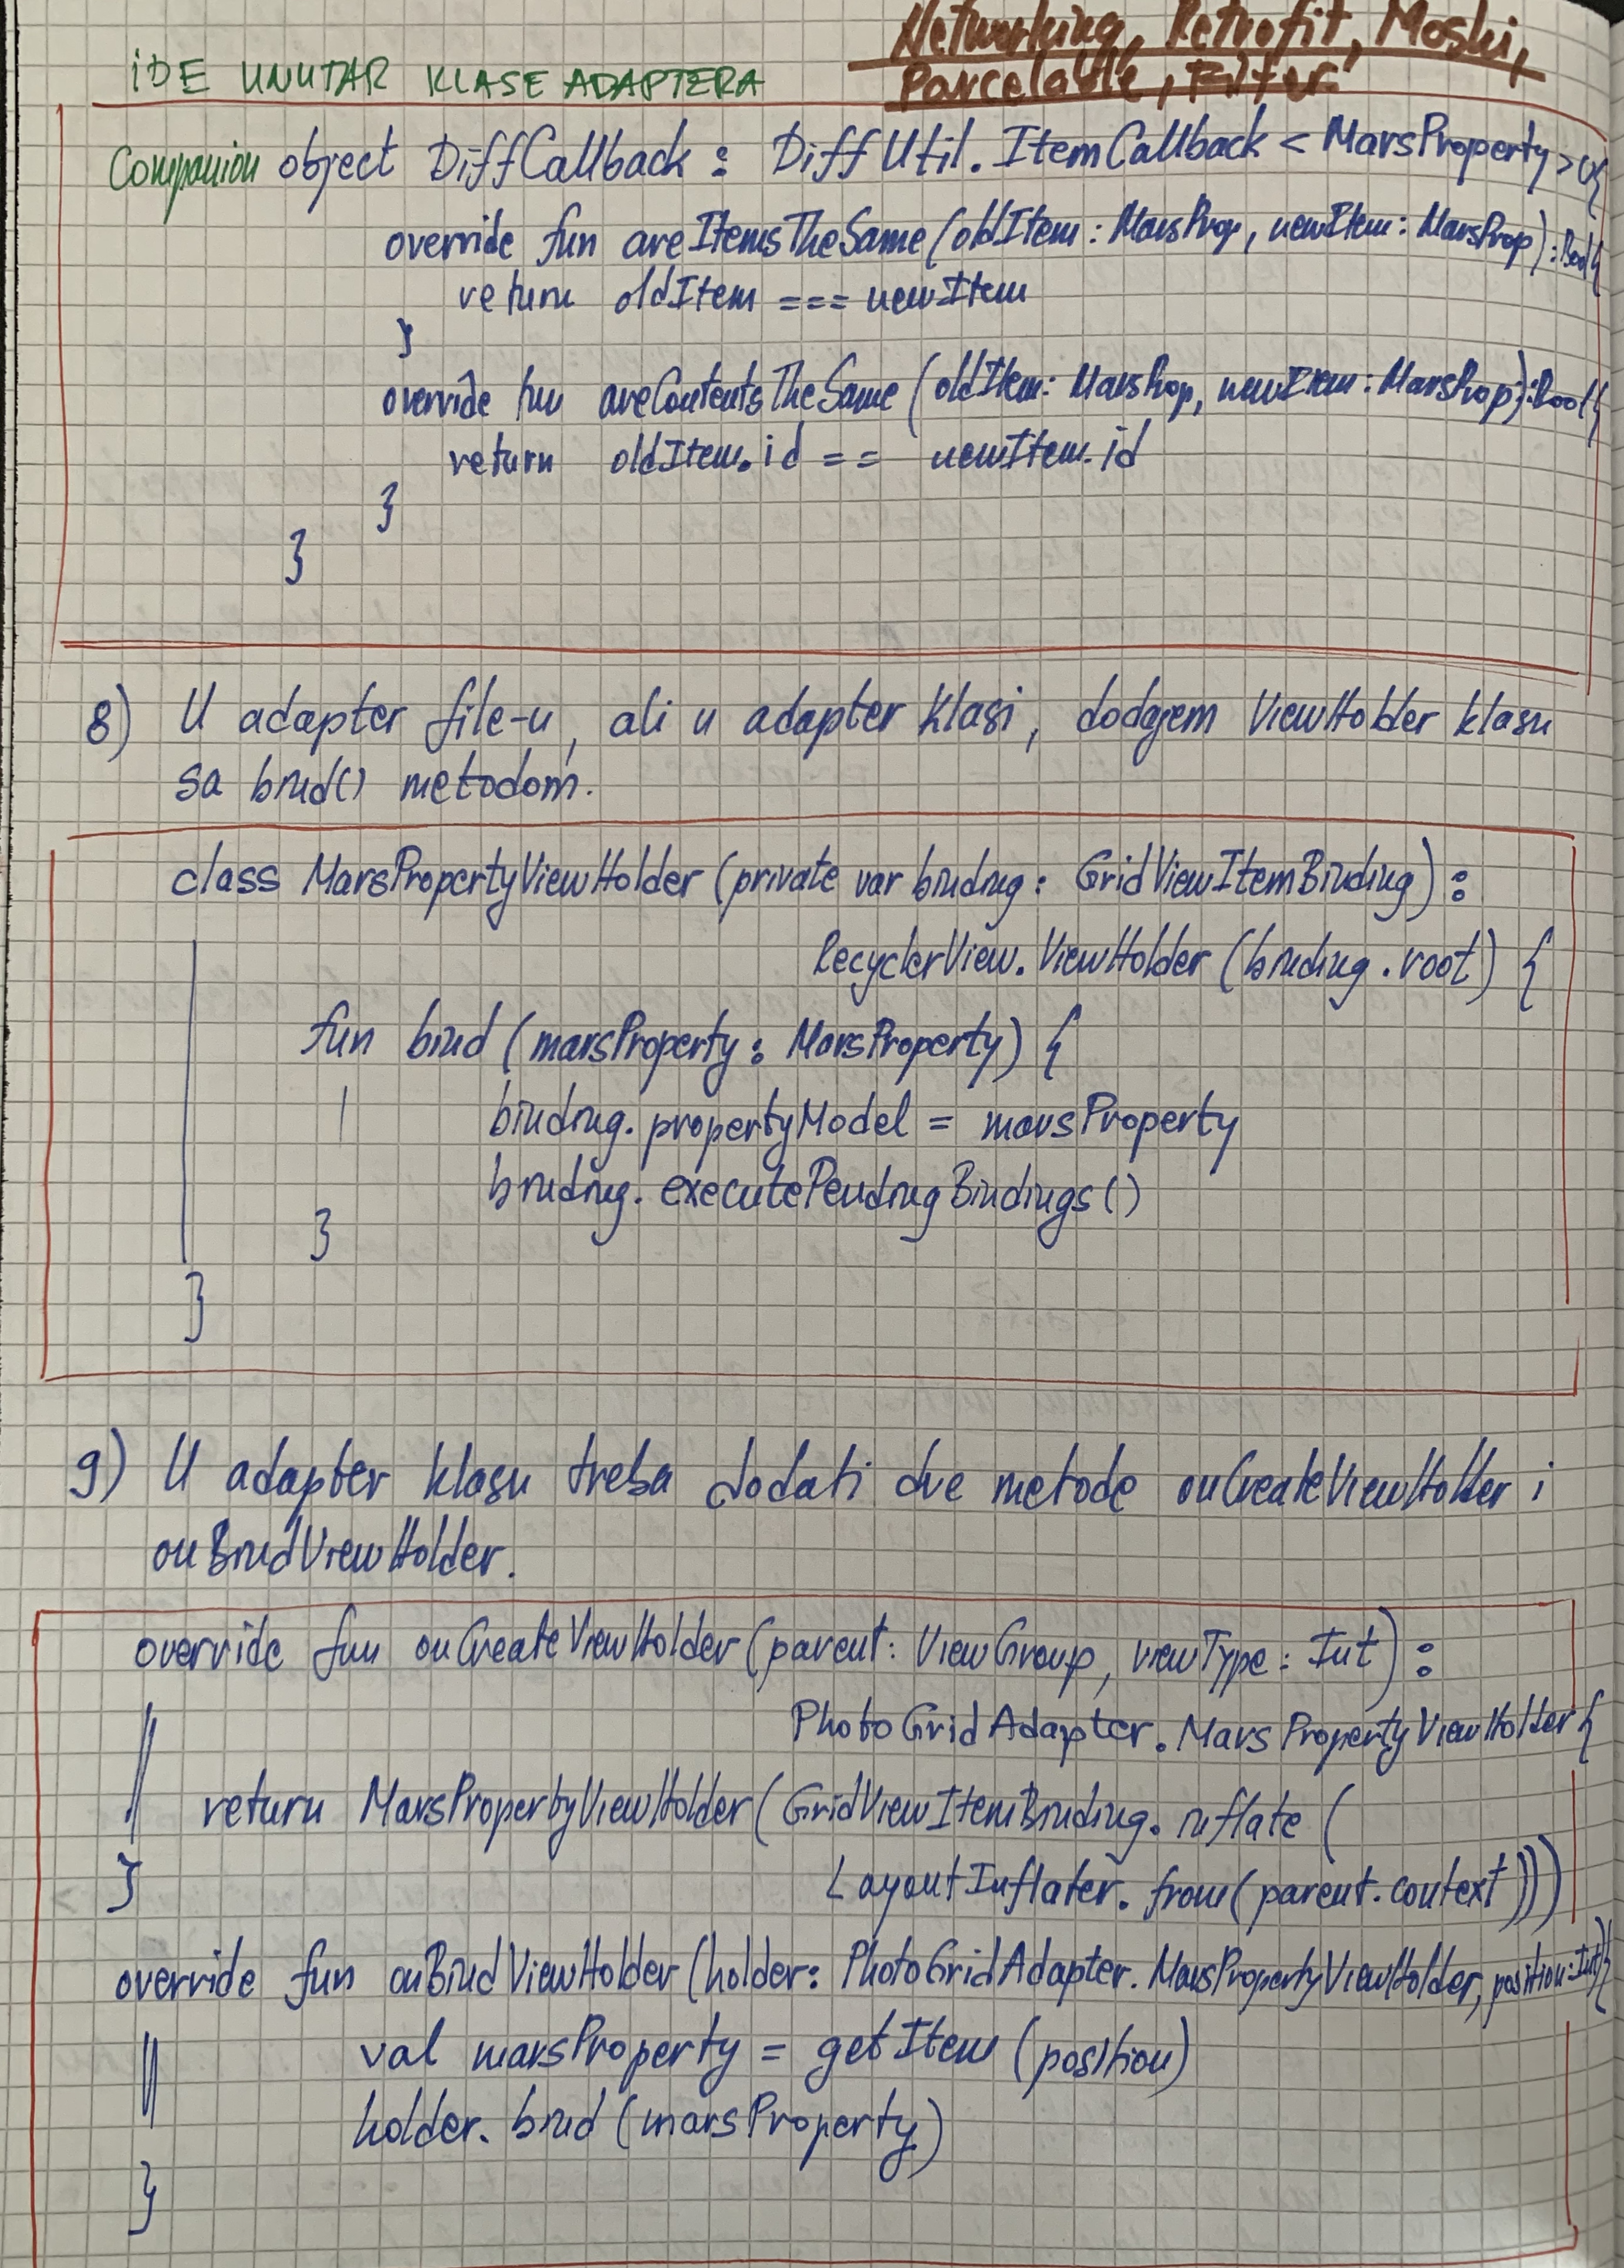 Networking, Retrofit, Moshi,
Parcelable, Filter
IDE UNUTAR KLASE ADAPTERA
Companion object DiffCallback : DiffUtil.ItemCallback < MarsProperty >(){
override fun areItemsTheSame (oldItem : MarsProp, newItem : MarsProp) : Bool{
return oldItem === newItem
}
override fun areContentsTheSame (oldItem: MarsProp, newItem : MarsProp):Bool{
return oldItem.id == newItem.id
}
}
8) U adapter file-u, ali u adapter klasi, dodajem ViewHolder klasu
sa bind() metodom.
class MarsPropertyViewHolder (private var binding : GridViewItemBinding) :
RecyclerView.ViewHolder (binding.root) {
fun bind (marsProperty : MarsProperty) {
binding.propertyModel = marsProperty
binding.executePendingBindings()
}
}
9) U adapter klasu treba dodati dve metode onCreateViewHolder i
onBindViewHolder.
override fun onCreateViewHolder (parent: ViewGroup, viewType : Int) :
PhotoGridAdapter.MarsPropertyViewHolder{
return MarsPropertyViewHolder (GridViewItemBinding.inflate (
} LayoutInflater.from(parent.context)))
override fun onBindViewHolder (holder: PhotoGridAdapter.MarsPropertyViewHolder, position:Int){
val marsProperty = getItem (position)
holder.bind (marsProperty)
}